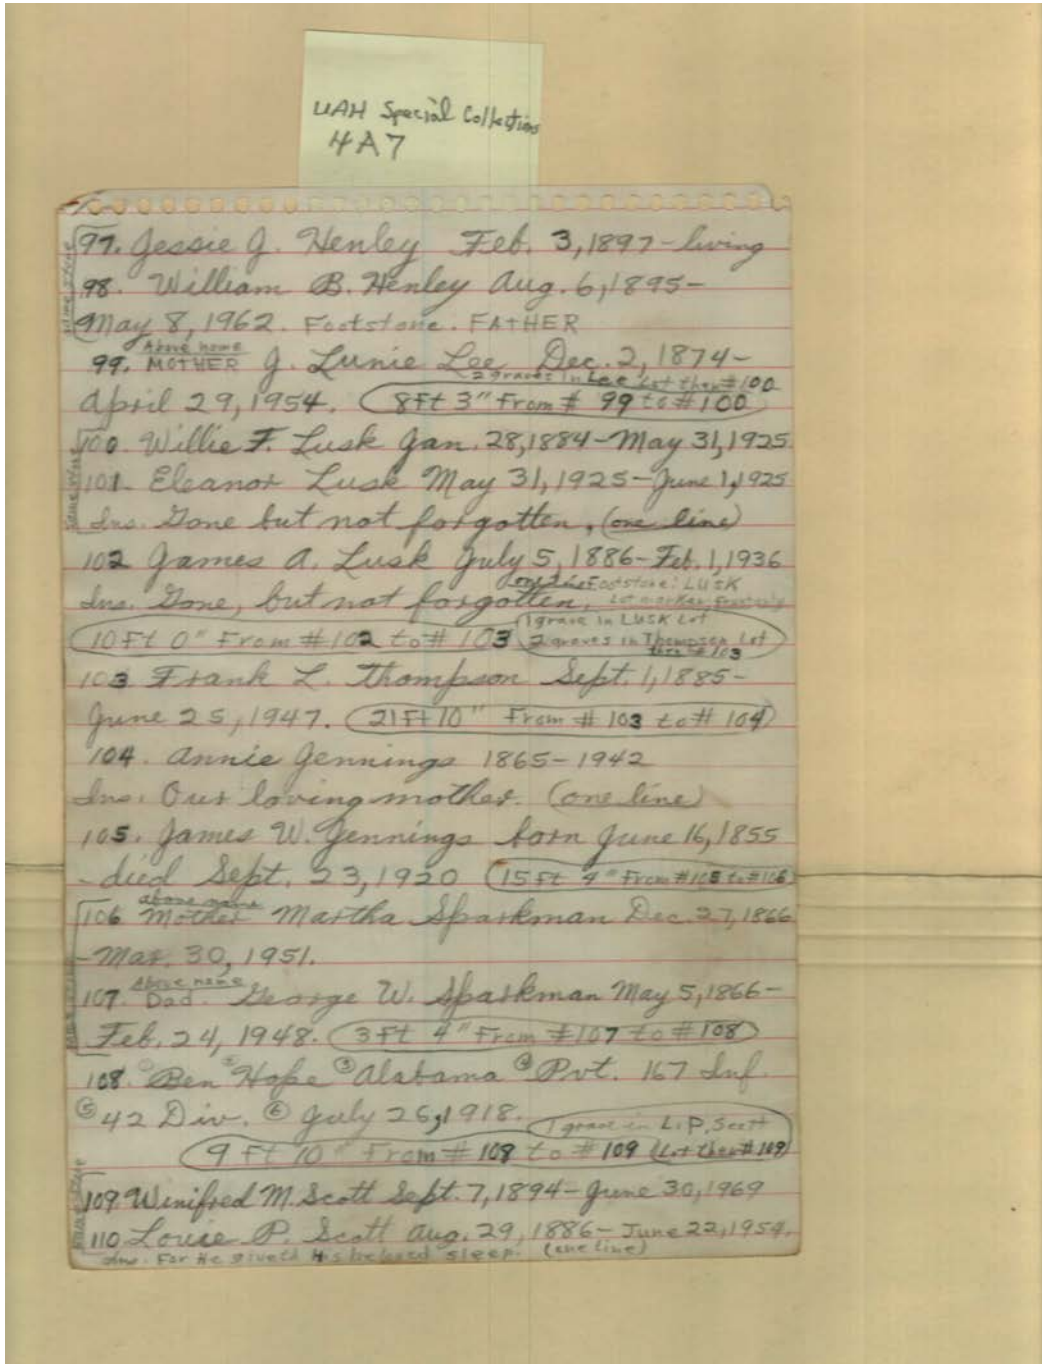 UAH Special Collections
4A7
97. Jessie J. Henley Feb. 3, 1897 - living
98. William B. Henley Aug. 6, 1895 -
May 8, 1962. Footstone. FATHER
Above name
99. MOTHER J. Lunie Lee Dec. 2, 1874 -
2 graves in Lee Lot then #100
April 29, 1954. 8 Ft 3" From # 99 to # 100
100 Willie F. Lusk Jan. 28, 1884 - May 31, 1925
101 Eleanor Lusk May 31, 1925 - June 1, 1925
Ins. Gone but not forgotten, (one line)
102 James A. Lusk July 5, 1886 - Feb. 1, 1936
one line Footstone: LUSK
Ins. Gone, but not forgotten, Lot marker
1 grave in LUSK Lot
10 Ft 0" From # 102 to # 103 2 graves in Thompson Lot
then # 103
103 Frank L. Thompson Sept. 1, 1885 -
June 25, 1947. 21 Ft 10" From # 103 to # 104
104. Annie Jennings 1865 - 1942
Ins. Our loving mother. (one line)
105. James W. Jennings born June 16, 1855
- died Sept. 23, 1920 15 Ft 4" From #105 to #106
above name
106 Mother Martha Sparkman Dec. 27, 1866
- Mar. 30, 1951.
Above name
107. Dad. George W. Sparkman May 5, 1866 -
Feb. 24, 1948. 3 Ft 4" From #107 to #108
108. ① Ben ② Hope ③ Alabama ④ Pvt. 167 Inf.
⑤ 42 Div. ⑥ July 26, 1918. 1 grave in L.P. Scott
9 Ft 10" From # 108 to # 109 (Lot then # 109)
109. Winifred M. Scott Sept. 7, 1894 - June 30, 1969
110 Louie P. Scott Aug. 29, 1886 - June 22, 1954.
Ins. For He giveth His beloved sleep. (one line)